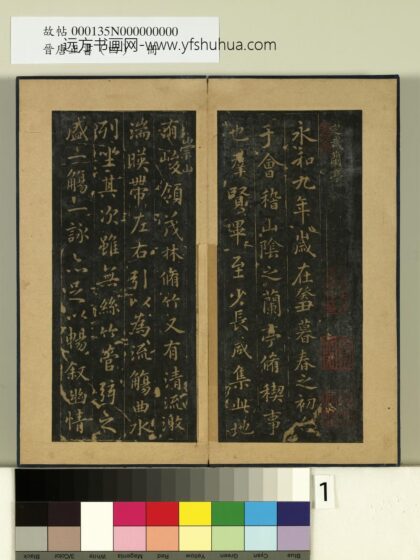 故帖 000135N000000000
远方书画网-www.yfshuhua.com
定武蘭亭
永和九年歲在癸丑暮春之初會
于會稽山陰之蘭亭脩稧事
也群賢畢至少長咸集此地
有崇山
峻領茂林脩竹又有清流激
湍暎帶左右引以為流觴曲水
列坐其次雖無絲竹管弦之
盛一觴一詠亦足以暢敘幽情
1
Black
3/Color
White
Magenta
Red
Yellow
Green
Cyan
Blue